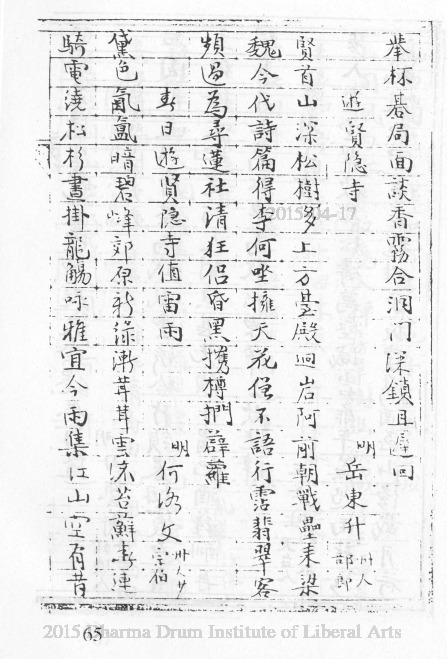 举杯碁局面談香霧合洞门深鎖且遲回
遊賢隐寺
明 岳東升 卅人部郎
賢首山深松樹多上方䑓殿迥岩阿前朝戰壘来梁
魏今代詩篇得李何坐擁天花僧不語行霑翡翠客
頻過為尋蓮社清狂侣昏黑攜樽捫薜蘿
春日遊賢隐寺值雷雨
明 何洛文 卅人宗伯
黛色氤氲暗碧峰郊原新緑漸茸茸雲流苔蘚春連
騎電澆松杉晝掛龍觴咏雅宜今雨集江山空有昔
2015-04-17
65
2015 Dharma Drum Institute of Liberal Arts